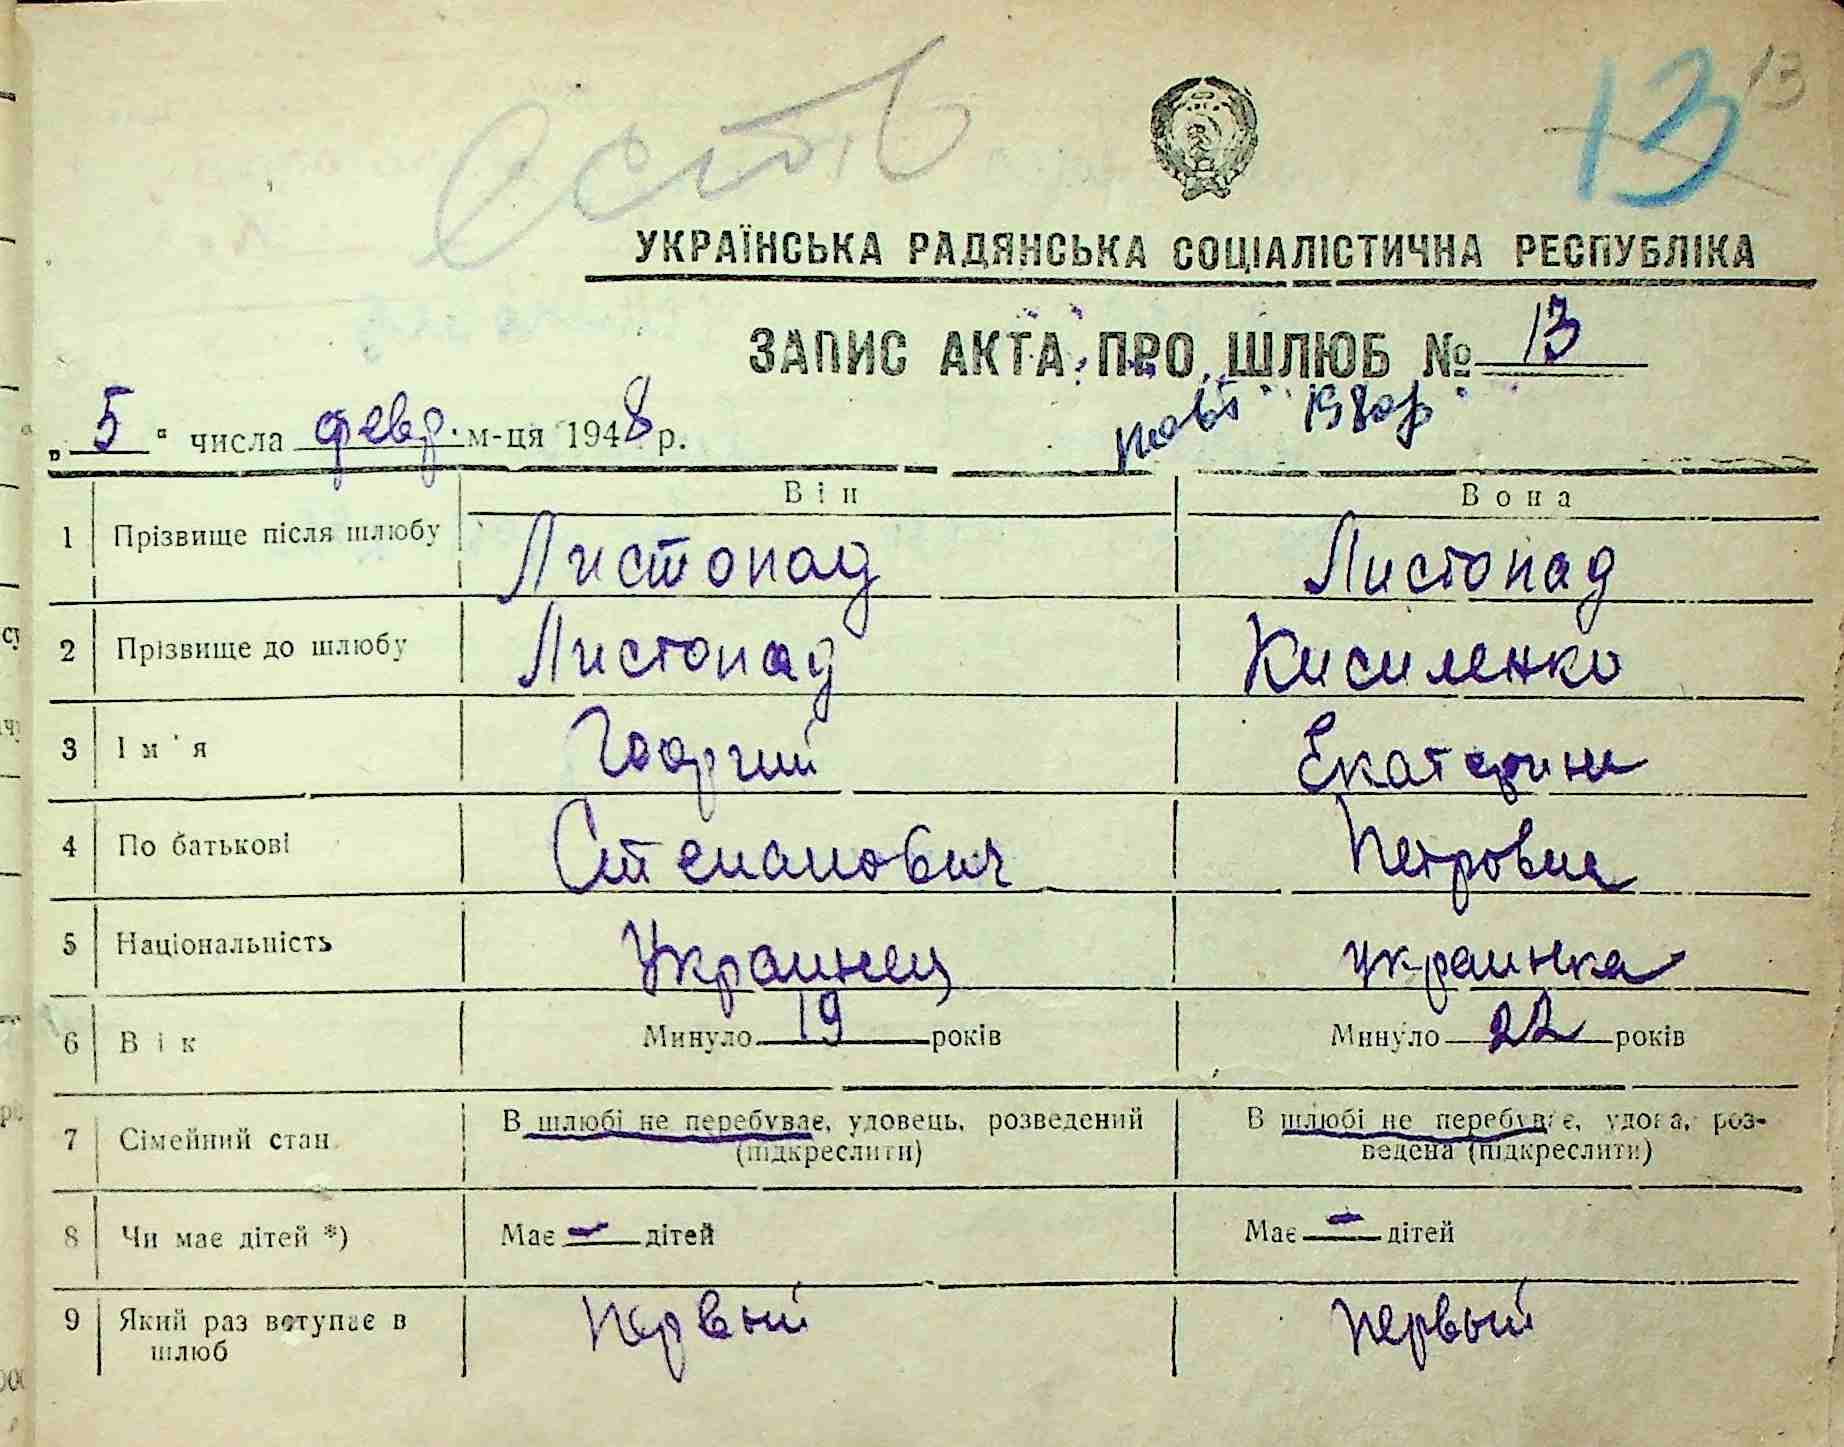 13 13
УКРАЇНСЬКА РАДЯНСЬКА СОЦІАЛІСТИЧНА РЕСПУБЛІКА
ЗАПИС АКТА ПРО ШЛЮБ № 13
„5“ числа февр. м-ця 1948 р.
Він Вона
1 Прізвище після шлюбу Листопад Листопад
2 Прізвище до шлюбу Листопад Кисиленко
3 Ім'я Георгий Екатерина
4 По батькові Степанович Петровна
5 Національність Украинец украинка
6 Вік Минуло 19 років Минуло 22 років
7 Сімейний стан В шлюбі не перебуває, удовець, розведений В шлюбі не перебуває, удова, роз-
(підкреслити) ведена (підкреслити)
8 Чи має дітей *) Має — дітей Має — дітей
9 Який раз вступає в Первый Первый
шлюб